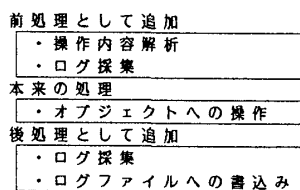 前処理として追加
・操作内容解析
・ログ採集
本来の処理
・オブジェクトへの操作
後処理として追加
・ログ採集
・ログファイルへの書込み